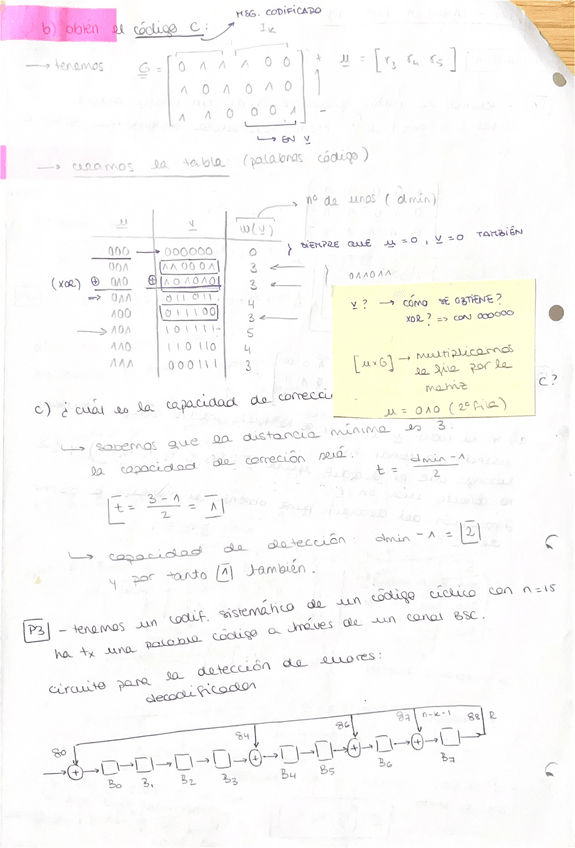 MSG. CODIFICADO
b) obten el código C:
I_K
→ tenemos G = [ 0 1 1 1 0 0 u = [r3 r4 r5]
1 0 1 0 1 0
1 1 0 0 0 1 ]
→ EN V
→ creamos la tabla (palabras código)
→ nº de unos (dmin)
u v w(v)
000 → 000000 0 } SIEMPRE QUE u = 0, v = 0 TAMBIÉN
001 110001 3 ←
(XOR) ⊕ 010 ⊕ 101010 3 ← } 011011
→ 011 011011 4
100 011100 3 ←
→ 101 101111 5
110 110110 4
111 000111 3
v? → CÓMO SE OBTIENE?
XOR? => CON 000000
[u×G] → multiplicamos
la fila por la
matriz
u = 010 (2ª fila)
c) ¿cuál es la capacidad de correcci C?
↳ sabemos que la distancia mínima es 3.
la capacidad de correción será: t = dmin - 1 / 2
t = 3 - 1 / 2 = 1
↳ capacidad de detección: dmin - 1 = 2
y por tanto 1 también.
P3 - tenemos un codif. sistemático de un código cíclico con n=15
ha tx una palabra código a tráves de un canal BSC.
circuito para la detección de errores:
decodificador
g0 g4 g6 g7 n-k-1 g8 R
B0 B1 B2 B3 B4 B5 B6 B7